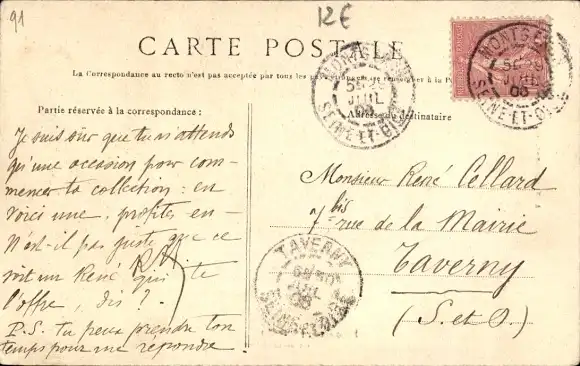 91
12€
CARTE POSTALE
La Correspondance au recto n'est pas acceptée par tous les pays
Partie réservée à la correspondance :
Adresse du destinataire
Je suis sûr que tu n'attends
qu'une occasion pour com-
mencer ta collection : en
voici une, profites en -
N'est-il pas juste que ce
soit un René qui te
l'offre, dis ?
P.S. tu peux prendre ton
temps pour me repondre.
Monsieur René Collard
7 bis rue de la Mairie
Taverny
(S. et O.)
MONTGERON
JUIL
SEINE-ET-OISE
MONTGERON
JUIL
SEINE-ET-OISE
TAVERNY